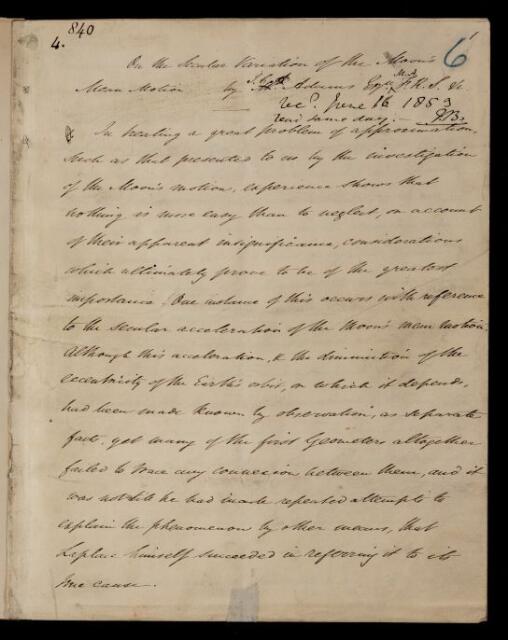 840
4.
6
On the Secular Variation of the Moon's
Mean Motion by J. C. Adams Esqre M.A. F.R.S. &c
Recd. June 16 1853
read same day.
1. In treating a great problem of approximation,
such as that presented to us by the investigation
of the Moon's motion, experience shows that
nothing is more easy than to neglect, on account
of their apparent insignificance, considerations
which ultimately prove to be of the greatest
importance. One instance of this occurs with reference
to the secular acceleration of the Moon's mean motion.
Although this acceleration, & the diminution of the
eccentricity of the Earth's orbit, on which it depends,
had been made known by observation, as separate
facts, yet many of the first Geometers altogether
failed to trace any connexion between them, and it
was not till he had made repeated attempts to
explain the phenomenon by other means, that
Laplace himself succeeded in referring it to its
true cause.